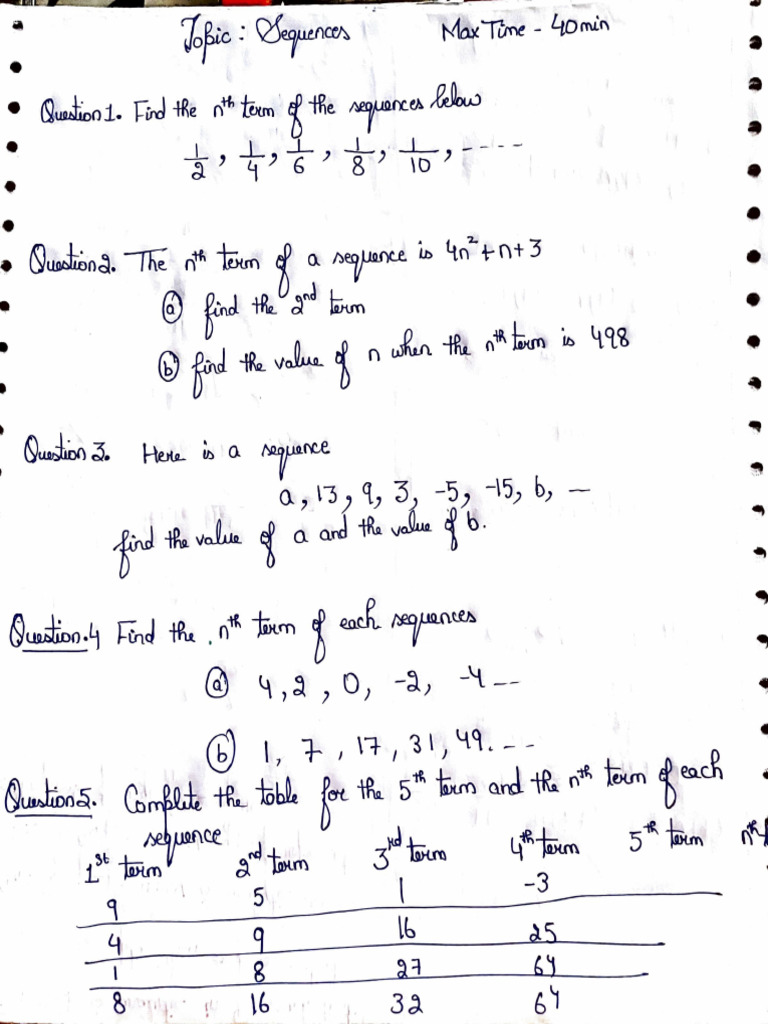 Topic: Sequences Max Time - 40min
Question 1. Find the nth term of the sequences below
1/2, 1/4, 1/6, 1/8, 1/10, ----
Question 2. The nth term of a sequence is 4n²+n+3
ⓐ find the 2nd term
ⓑ find the value of n when the nth term is 498
Question 3. Here is a sequence
a, 13, 9, 3, -5, -15, b, —
find the value of a and the value of b.
Question.4 Find the nth term of each sequences
ⓐ 4, 2, 0, -2, -4 --
ⓑ 1, 7, 17, 31, 49. ---
Question 5. Complete the table for the 5th term and the nth term of each
sequence
1st term 2nd term 3rd term 4th term 5th term nth
9 5 1 -3
4 9 16 25
1 8 27 64
8 16 32 64